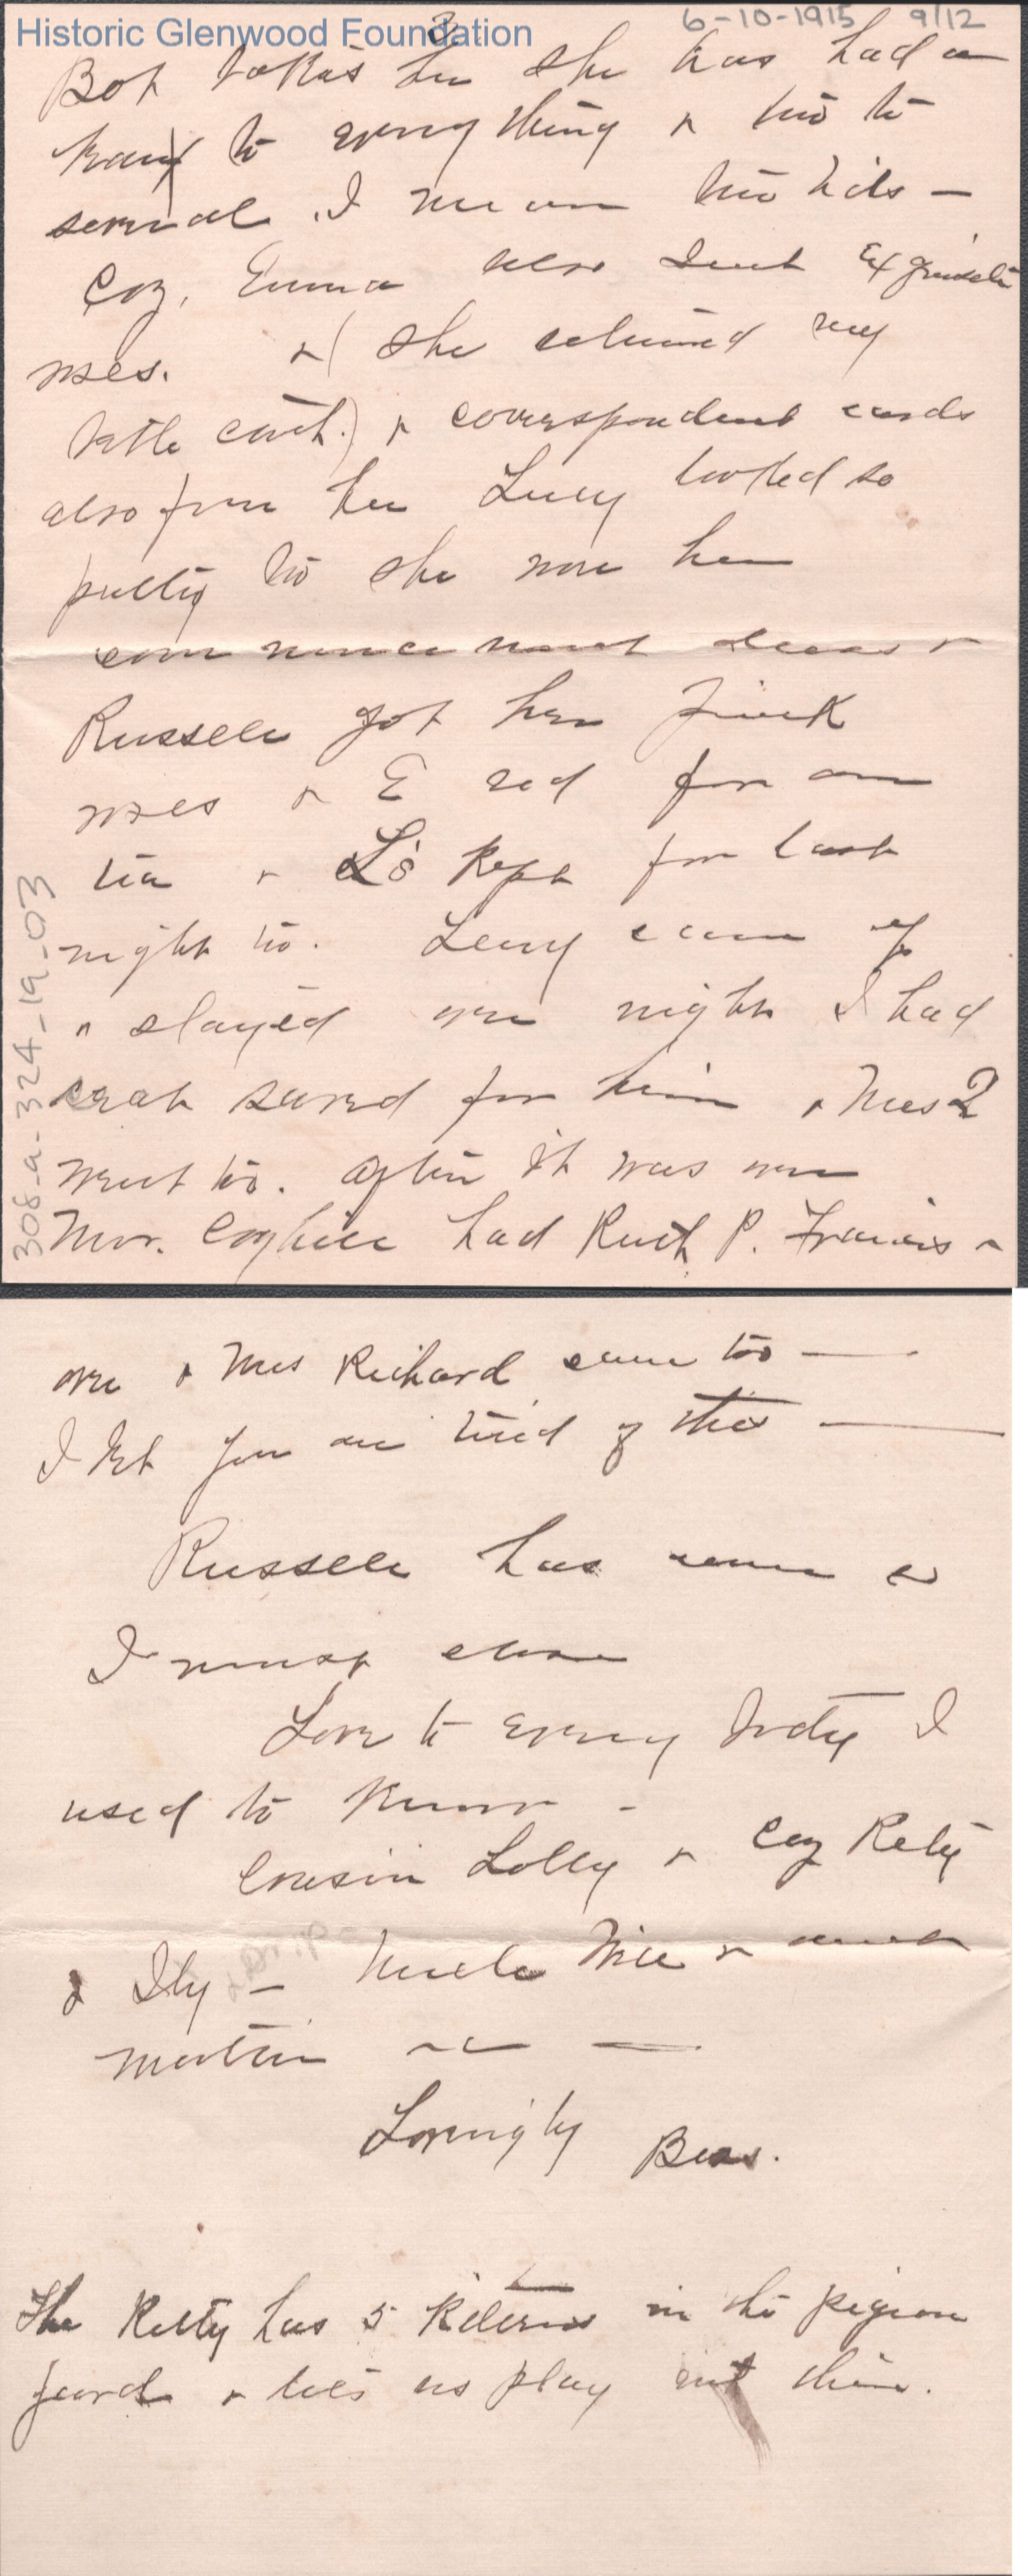 Historic Glenwood Foundation
6-10-1915 9/12
3
Bob takes her she has had a
to every thing & two to
several. I mean two hats —
Coz. Emma also sent exquisite
roses. & (she returned my
little coat.) & correspondent cards
also from her Lucy looked so
pretty too she wore her
commencement dress &
Russell got her pink
roses & E red for our
tea & L's kept for last
night too. Leroy came up
& stayed one night I had
seat saved for him & Mrs
went too. After it was over
Mr. Coghill had Ruth P. Francis &
me & Mrs Richard came too —
I bet you are tired of this —
Russell has come so
I must close
Love to every body I
used to know -
Cousin Lolly & Coz Kety
& Ily — Uncle Will & aunt
Mattie —
Lovingly Bess.
The Kitty has 5 kittens in the pigeon
yard & lets us play with them.
308-a-324-19-03